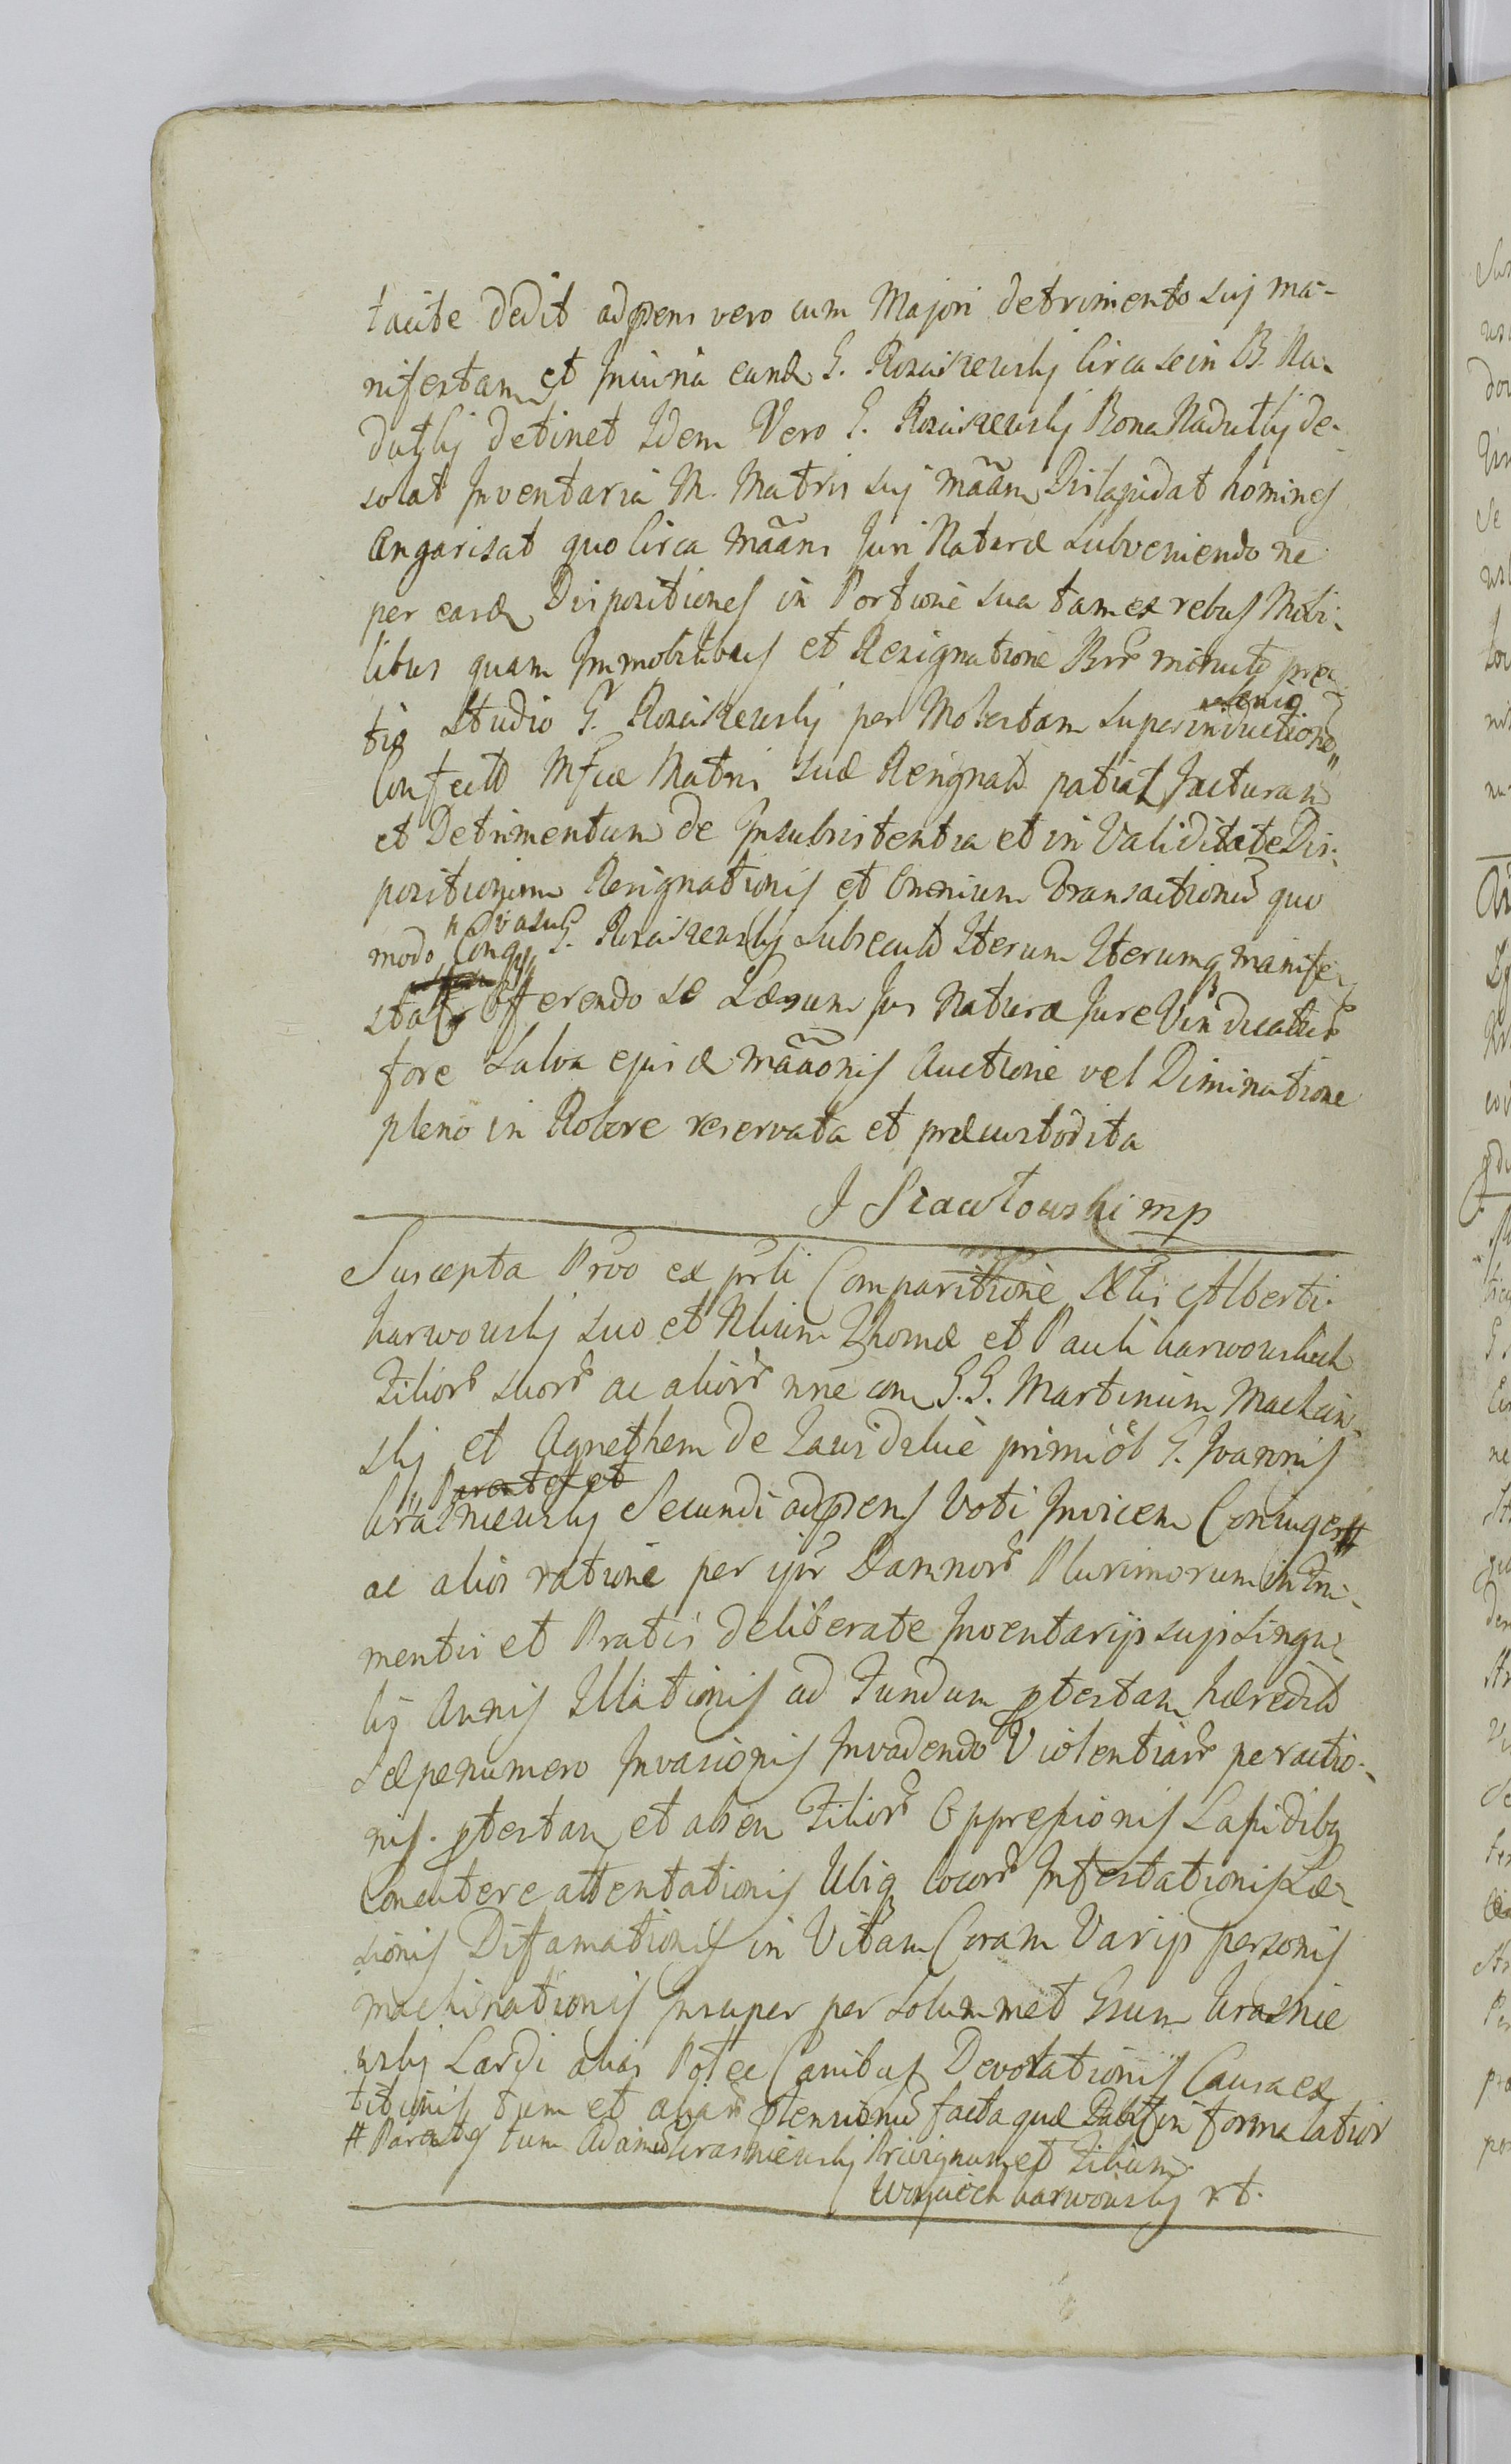 tacite dedit adprens vero cum Majori detrimento sui ma-
nifestam et Iniuria eand G. Roiaiszewskj Circa se in B. Na-
dutkj detinet Idem Vero G. Roiaiszewskj Bona Nadutkj de-
solat Inventaria M. Matris suj mããm Dislapidat homines
Angarisat quo Circa mããm Juri Naturæ subveniendo ne
per easd Dispositiones in Portione sua tam ex rebus Mobi-
libus quam Immobilibus et Resignatione minute pre-
tio studio G. Roiaiszewskj per Molestam Superinductione
Confecto Mfcæ Matri suæ Resignato patiat Jacturam
et Detrimentum de Insubsistentia et in Validitate Dis-
positionum Resignationis et Omnium Transactionu quo
modo G. Roiaiszewskj subsecuto Iterum Iterumq manife-
statr Offerendo se Læsum Jus Naturæ Jure Vindicatur
fore salva ejusd mããonis Auctione vel Diminutione
pleno in Robore reservata et præcustodita
J Szawłowski mp
Suscepta Prõ ex prli Comparitione Albertj
karwowskj suo et Nlium Thomæ et Pauli karwowskich
Filior suor ac alior nne con G.G. Martinum Machcin-
skj et Agnethem de primi G. Joannis
krasniewskj Secundi adprens Voti Invicem Coniuges #
ac alios ratione per ips Damnor Plurimorum in Fru-
mentis et Pratis deliberate Inventarijs sujs singu-
lis Annis Illationis ad Fundum ptestan hæredit
Sæpenumero Invasionis Invadendo Violentiar peractio-
nis ptestan et absen Filior Oppressionis Lapidibq
Concutere attentationis Ubiq locor Infestationis Læ-
sionis Diffamationis in Vitam Coram Varijs personis
machinationis Insuper per solummet Gsum krasnie
wskj Lardi alias Połec Canibus Devorationis Causa ex
titionis tum et aliar ptensionu facta quæ Dabit in forma latior
# Parentes tum Adamu krasniewskj Privignum et Filium
Woyciech karwowskj rt.